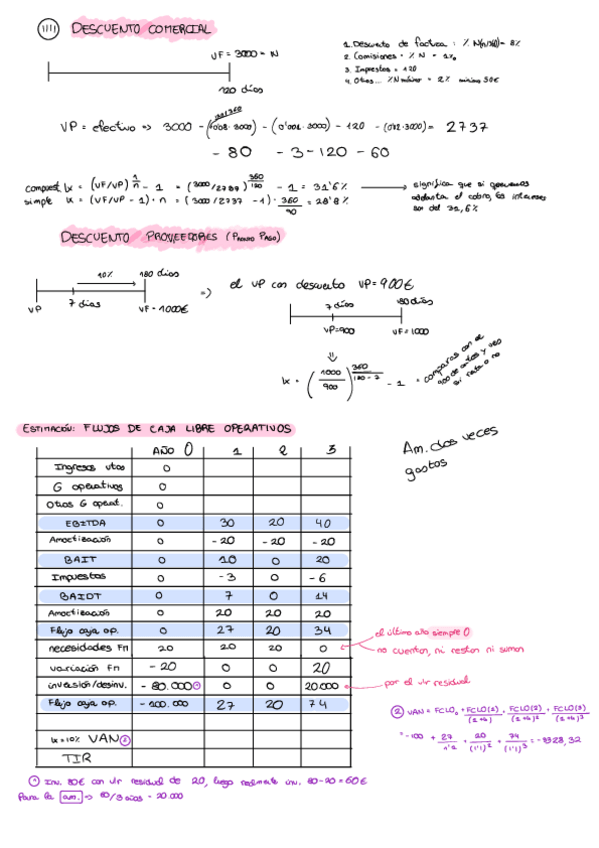 DESCUENTO COMERCIAL
VF = 3000 = N
120 días
1. Descuento de factura : % N(n/360) = 8%
2. Comisiones = % N = 1‰
3. Impuestos = 120
4. Otros... % N mínimo = 2% mínimo 30€
VP = efectivo => 3000 - (0'08 · 3000) - (0'001 · 3000) - 120 - (0'02 · 3000) = 2737
- 80 - 3 - 120 - 60
compuest k = (VF/VP)^(1/n) - 1 = (3000/2737)^(360/120) - 1 = 31'6%
simple k = (VF/VP - 1) · n = (3000/2737 - 1) · 360/90 = 28'8%
significa que si queremos
adelantar el cobro, los intereses
son del 31,6%
DESCUENTO PROVEEDORES (PRONTO PAGO)
10%
180 días
VP
7 días
VF = 1000€
=>
el VP con descuento VP = 900€
7 días
180 días
VP=900
VF = 1000
k = (1000/900)^(360/(180 - 7)) - 1 =
comparas con el
y veo
si renta o no
ESTIMACIÓN: FLUJOS DE CAJA LIBRE OPERATIVOS
AÑO 0 1 2 3
Ingresos vtas 0
G operativos 0
Otros G operat. 0
EBITDA 0 30 20 40
Amortización 0 -20 -20 -20
BAIT 0 10 0 20
Impuestos 0 -3 0 -6
BAIDT 0 7 0 14
Amortización 0 20 20 20
Flujo caja op. 0 27 20 34
necesidades Fn 20 20 20 0
variación Fn -20 0 0 20
inversión/desinv. -80.000① 0 0 20.000
Flujo caja op. -100.000 27 20 74
k=10% VAN②
TIR
Am. dos veces
gastos
el último año siempre 0
no cuentan, ni restan ni suman
por el vlr residual
② VAN = FCLO₀ + FCLO(1)/(1+k) + FCLO(2)/(1+k)² + FCLO(3)/(1+k)³
= -100 + 27/1'1 + 20/(1'1)² + 74/(1'1)³ =
① Inv. 80€ con vlr residual de 20, luego realmente inv. 80-20 = 60€
Para la am. => 60/3 años = 20.000